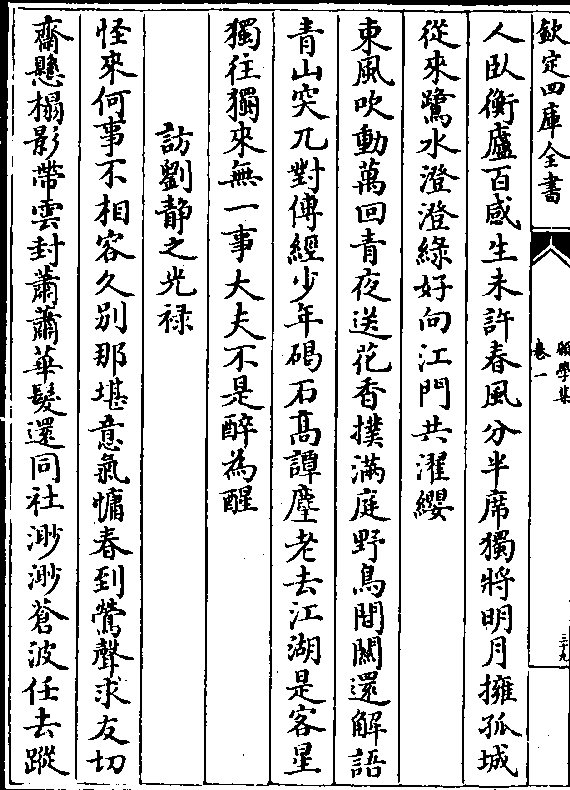 欽定四庫全書
願學集
卷一
三十九
人臥衡廬百感生未許春風分半席獨將明月擁孤城
從來鷺水澄澄綠好向江門共濯纓
東風吹動萬回青夜送花香撲滿庭野鳥間關還解語
青山突兀對傳經少年碣石高譚麈老去江湖是客星
獨往獨來無一事大夫不是醉為醒
訪劉靜之光祿
怪來何事不相容久別那堪意氣慵春到鶯聲求友切
齋懸榻影帶雲封蕭蕭華髮還同社渺渺蒼波任去蹤